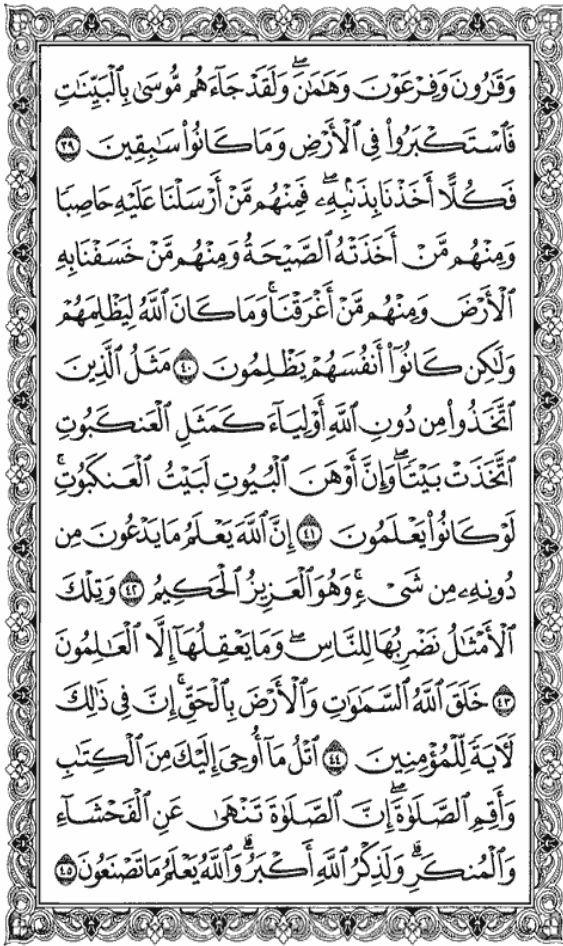 وَقَٰرُونَ وَفِرْعَوْنَ وَهَٰمَٰنَۖ وَلَقَدْ جَآءَهُم مُّوسَىٰ بِٱلْبَيِّنَٰتِ
فَٱسْتَكْبَرُوا۟ فِى ٱلْأَرْضِ وَمَا كَانُوا۟ سَٰبِقِينَ ٣٩
فَكُلًّا أَخَذْنَا بِذَنۢبِهِۦۖ فَمِنْهُم مَّنْ أَرْسَلْنَا عَلَيْهِ حَاصِبًا
وَمِنْهُم مَّنْ أَخَذَتْهُ ٱلصَّيْحَةُ وَمِنْهُم مَّنْ خَسَفْنَا بِهِ
ٱلْأَرْضَ وَمِنْهُم مَّنْ أَغْرَقْنَاۚ وَمَا كَانَ ٱللَّهُ لِيَظْلِمَهُمْ
وَلَٰكِن كَانُوٓا۟ أَنفُسَهُمْ يَظْلِمُونَ ٤٠ مَثَلُ ٱلَّذِينَ
ٱتَّخَذُوا۟ مِن دُونِ ٱللَّهِ أَوْلِيَآءَ كَمَثَلِ ٱلْعَنكَبُوتِ
ٱتَّخَذَتْ بَيْتًاۖ وَإِنَّ أَوْهَنَ ٱلْبُيُوتِ لَبَيْتُ ٱلْعَنكَبُوتِۚ
لَوْ كَانُوا۟ يَعْلَمُونَ ٤١ إِنَّ ٱللَّهَ يَعْلَمُ مَا يَدْعُونَ مِن
دُونِهِۦ مِن شَىْءٍۚ وَهُوَ ٱلْعَزِيزُ ٱلْحَكِيمُ ٤٢ وَتِلْكَ
ٱلْأَمْثَٰلُ نَضْرِبُهَا لِلنَّاسِۖ وَمَا يَعْقِلُهَآ إِلَّا ٱلْعَٰلِمُونَ
٤٣ خَلَقَ ٱللَّهُ ٱلسَّمَٰوَٰتِ وَٱلْأَرْضَ بِٱلْحَقِّۚ إِنَّ فِى ذَٰلِكَ
لَءَايَةً لِّلْمُؤْمِنِينَ ٤٤ ٱتْلُ مَآ أُوحِىَ إِلَيْكَ مِنَ ٱلْكِتَٰبِ
وَأَقِمِ ٱلصَّلَوٰةَۖ إِنَّ ٱلصَّلَوٰةَ تَنْهَىٰ عَنِ ٱلْفَحْشَآءِ
وَٱلْمُنكَرِۗ وَلَذِكْرُ ٱللَّهِ أَكْبَرُۗ وَٱللَّهُ يَعْلَمُ مَا تَصْنَعُونَ ٤٥